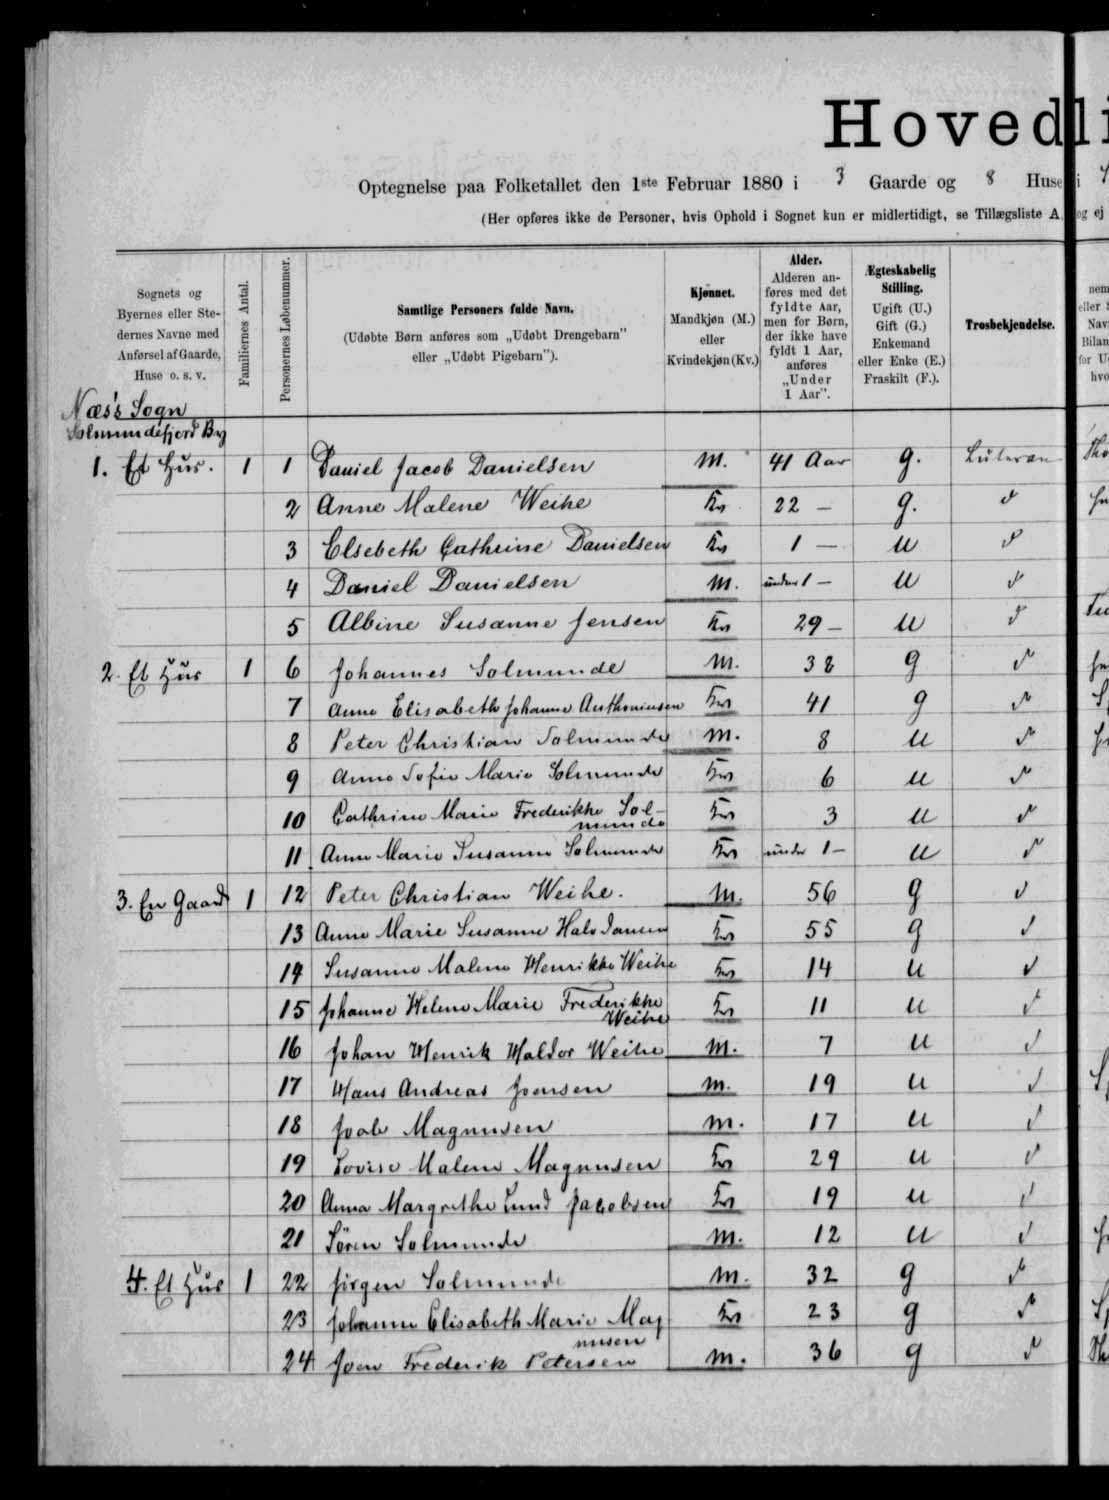 Hovedli
Optegnelse paa Folketallet den 1ste Februar 1880 i 3 Gaarde og 8 Huse i
(Her opføres ikke de Personer, hvis Ophold i Sognet kun er midlertidigt, se Tillægsliste A, og ej
Sognets og Byernes eller Stedernes Navne med Anførsel af Gaarde, Huse o. s. v.
Familiernes Antal.
Personernes Løbenummer.
Samtlige Personers fulde Navn.
(Udøbte Børn anføres som „Udøbt Drengebarn"
eller „Udøbt Pigebarn").
Kjønnet.
Mandkjøn (M.)
eller
Kvindekjøn (Kv.)
Alder.
Alderen an-
føres med det
fyldte Aar,
men for Børn,
der ikke have
fyldt 1 Aar,
anføres
„Under
1 Aar".
Ægteskabelig
Stilling.
Ugift (U.)
Gift (G.)
Enkemand
eller Enke (E.)
Fraskilt (F.).
Trosbekjendelse.
Næs's Sogn
Solmundefjord By
1. Et Hus. 1 1 Daniel Jacob Danielsen M. 41 Aar g. Luteran
2 Anne Malene Weihe Kv 22 — g. d
3 Elsebeth Cathrine Danielsen Kv 1 — U d
4 Daniel Danielsen M. under 1 — U d
5 Albine Susanne Jensen Kv 29 — U d
2. Et Hus 1 6 Johannes Solmunde M. 38 g d
7 Anne Elisabeth Johanne Anthoniusen Kv 41 g d
8 Peter Christian Solmunde M. 8 U d
9 Anne Sofie Marie Solmunde Kv 6 U d
10 Cathrine Marie Frederikke Sol-
munde Kv 3 U d
11 Anne Marie Susanne Solmunde Kv under 1 — U d
3. En Gaard 1 12 Peter Christian Weihe. M. 56 g d
13 Anne Marie Susanne Kv 55 g d
14 Susanne Malene Henrikke Weihe Kv 14 U d
15 Johanne Helene Marie Frederikke
Weihe Kv 11 U d
16 Johan Henrik Haldor Weihe M. 7 U d
17 Hans Andreas Joensen M. 19 U d
18 Magnusen M. 17 U d
19 Lovise Malene Magnusen Kv 29 U d
20 Anna Margrethe Lund Jacobsen Kv 19 U d
21 Søren Solmunde M. 12 U d
4. Et Hus 1 22 Jørgen Solmunde M. 32 g d
23 Johanne Elisabeth Marie Mag
nusen Kv 23 g d
24 Joen Frederik Petersen M. 36 g d